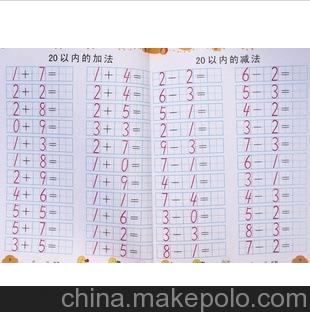 20以内的加法
1+7=
2+2=
2+8=
0+9=
1+3=
1+8=
2+9=
4+6=
5+5=
5+7=
3+5=
1+4=
2+4=
5+1=
3+2=
2+2=
1+0=
1+9=
4+1=
1+6=
1+2=
1+5=
20以内的减法
2-2=
6-3=
5-1=
2-1=
9-3=
7-1=
4-1=
7-4=
3-0=
5-2=
8-1=
6-2=
5-3=
4-2=
3-2=
7-3=
6-1=
5-1=
4-3=
5-4=
8-3=
7-2=
china.makepolo.com